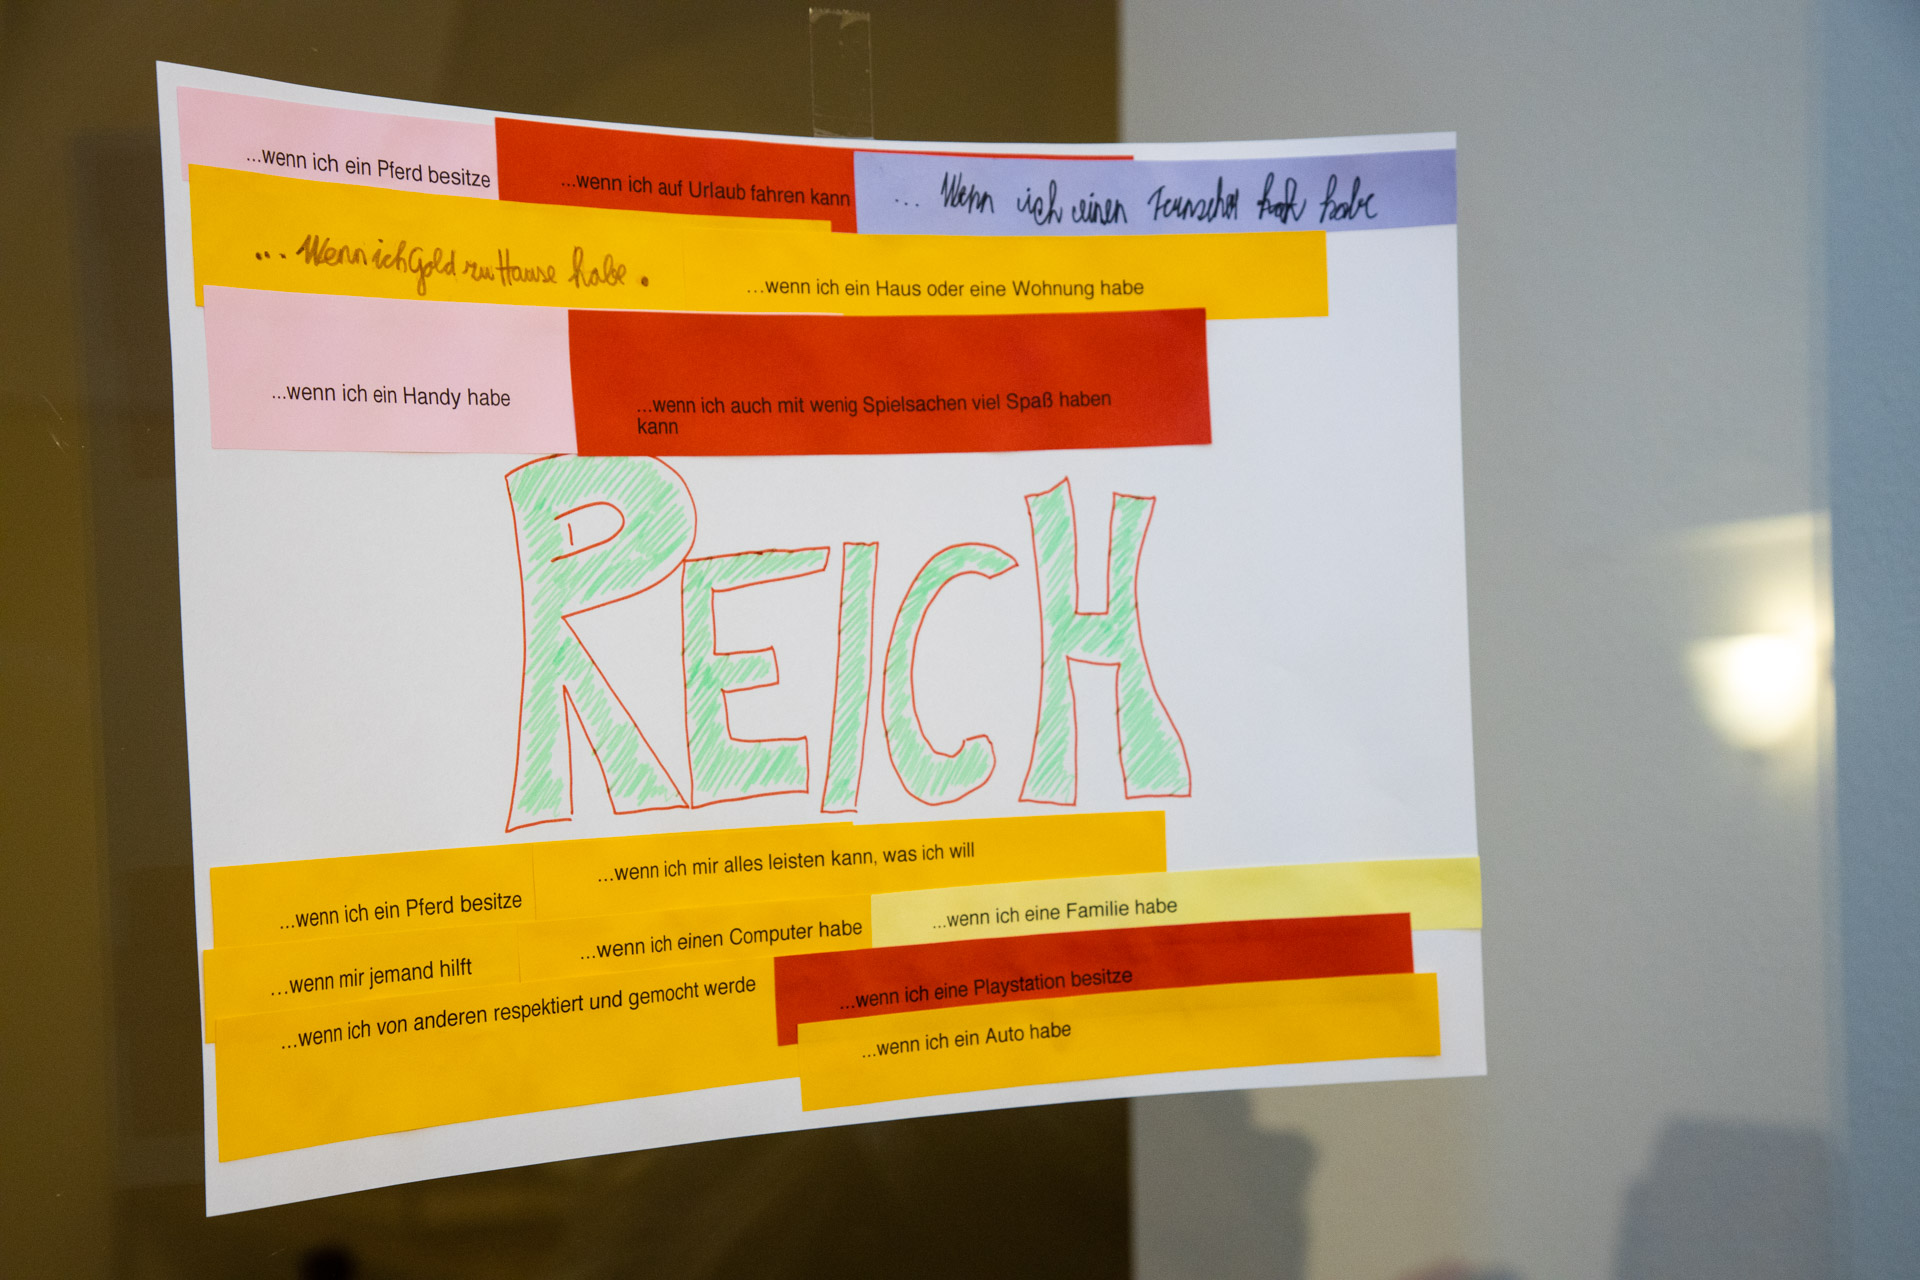 ...wenn ich ein Pferd besitze
...wenn ich auf Urlaub fahren kann
... Wenn ich einen habe
... Wenn ich Gold zu Hause habe.
...wenn ich ein Haus oder eine Wohnung habe
...wenn ich ein Handy habe
...wenn ich auch mit wenig Spielsachen viel Spaß haben
kann
REICH
...wenn ich mir alles leisten kann, was ich will
...wenn ich ein Pferd besitze
...wenn ich eine Familie habe
...wenn ich einen Computer habe
...wenn mir jemand hilft
...wenn ich eine Playstation besitze
...wenn ich von anderen respektiert und gemocht werde
...wenn ich ein Auto habe